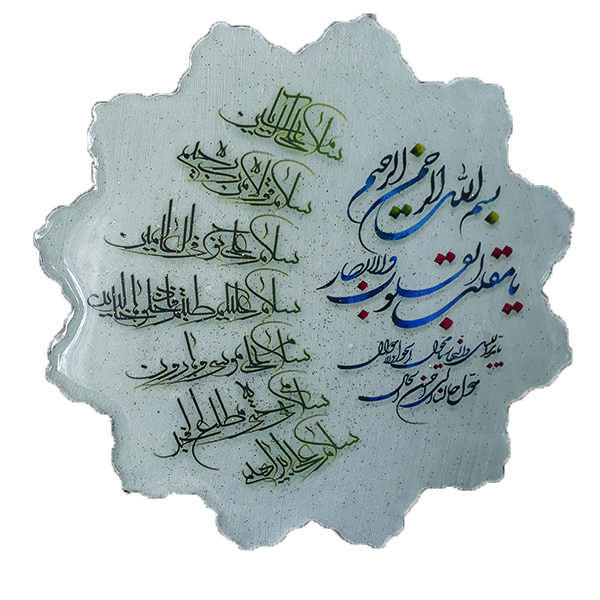 بسم الله الرحمن الرحیم
یا مقلب القلوب والابصار
یا مدبر اللیل والنهار یا محول الحول والاحوال
حول حالنا الی احسن الحال
سلام علی آل یاسین
سلام قولا من رب رحیم
سلام علی نوح فی العالمین
سلام علیکم طبتم فادخلوها خالدین
سلام علی موسی و هارون
سلام هی حتی مطلع الفجر
سلام علی ابراهیم